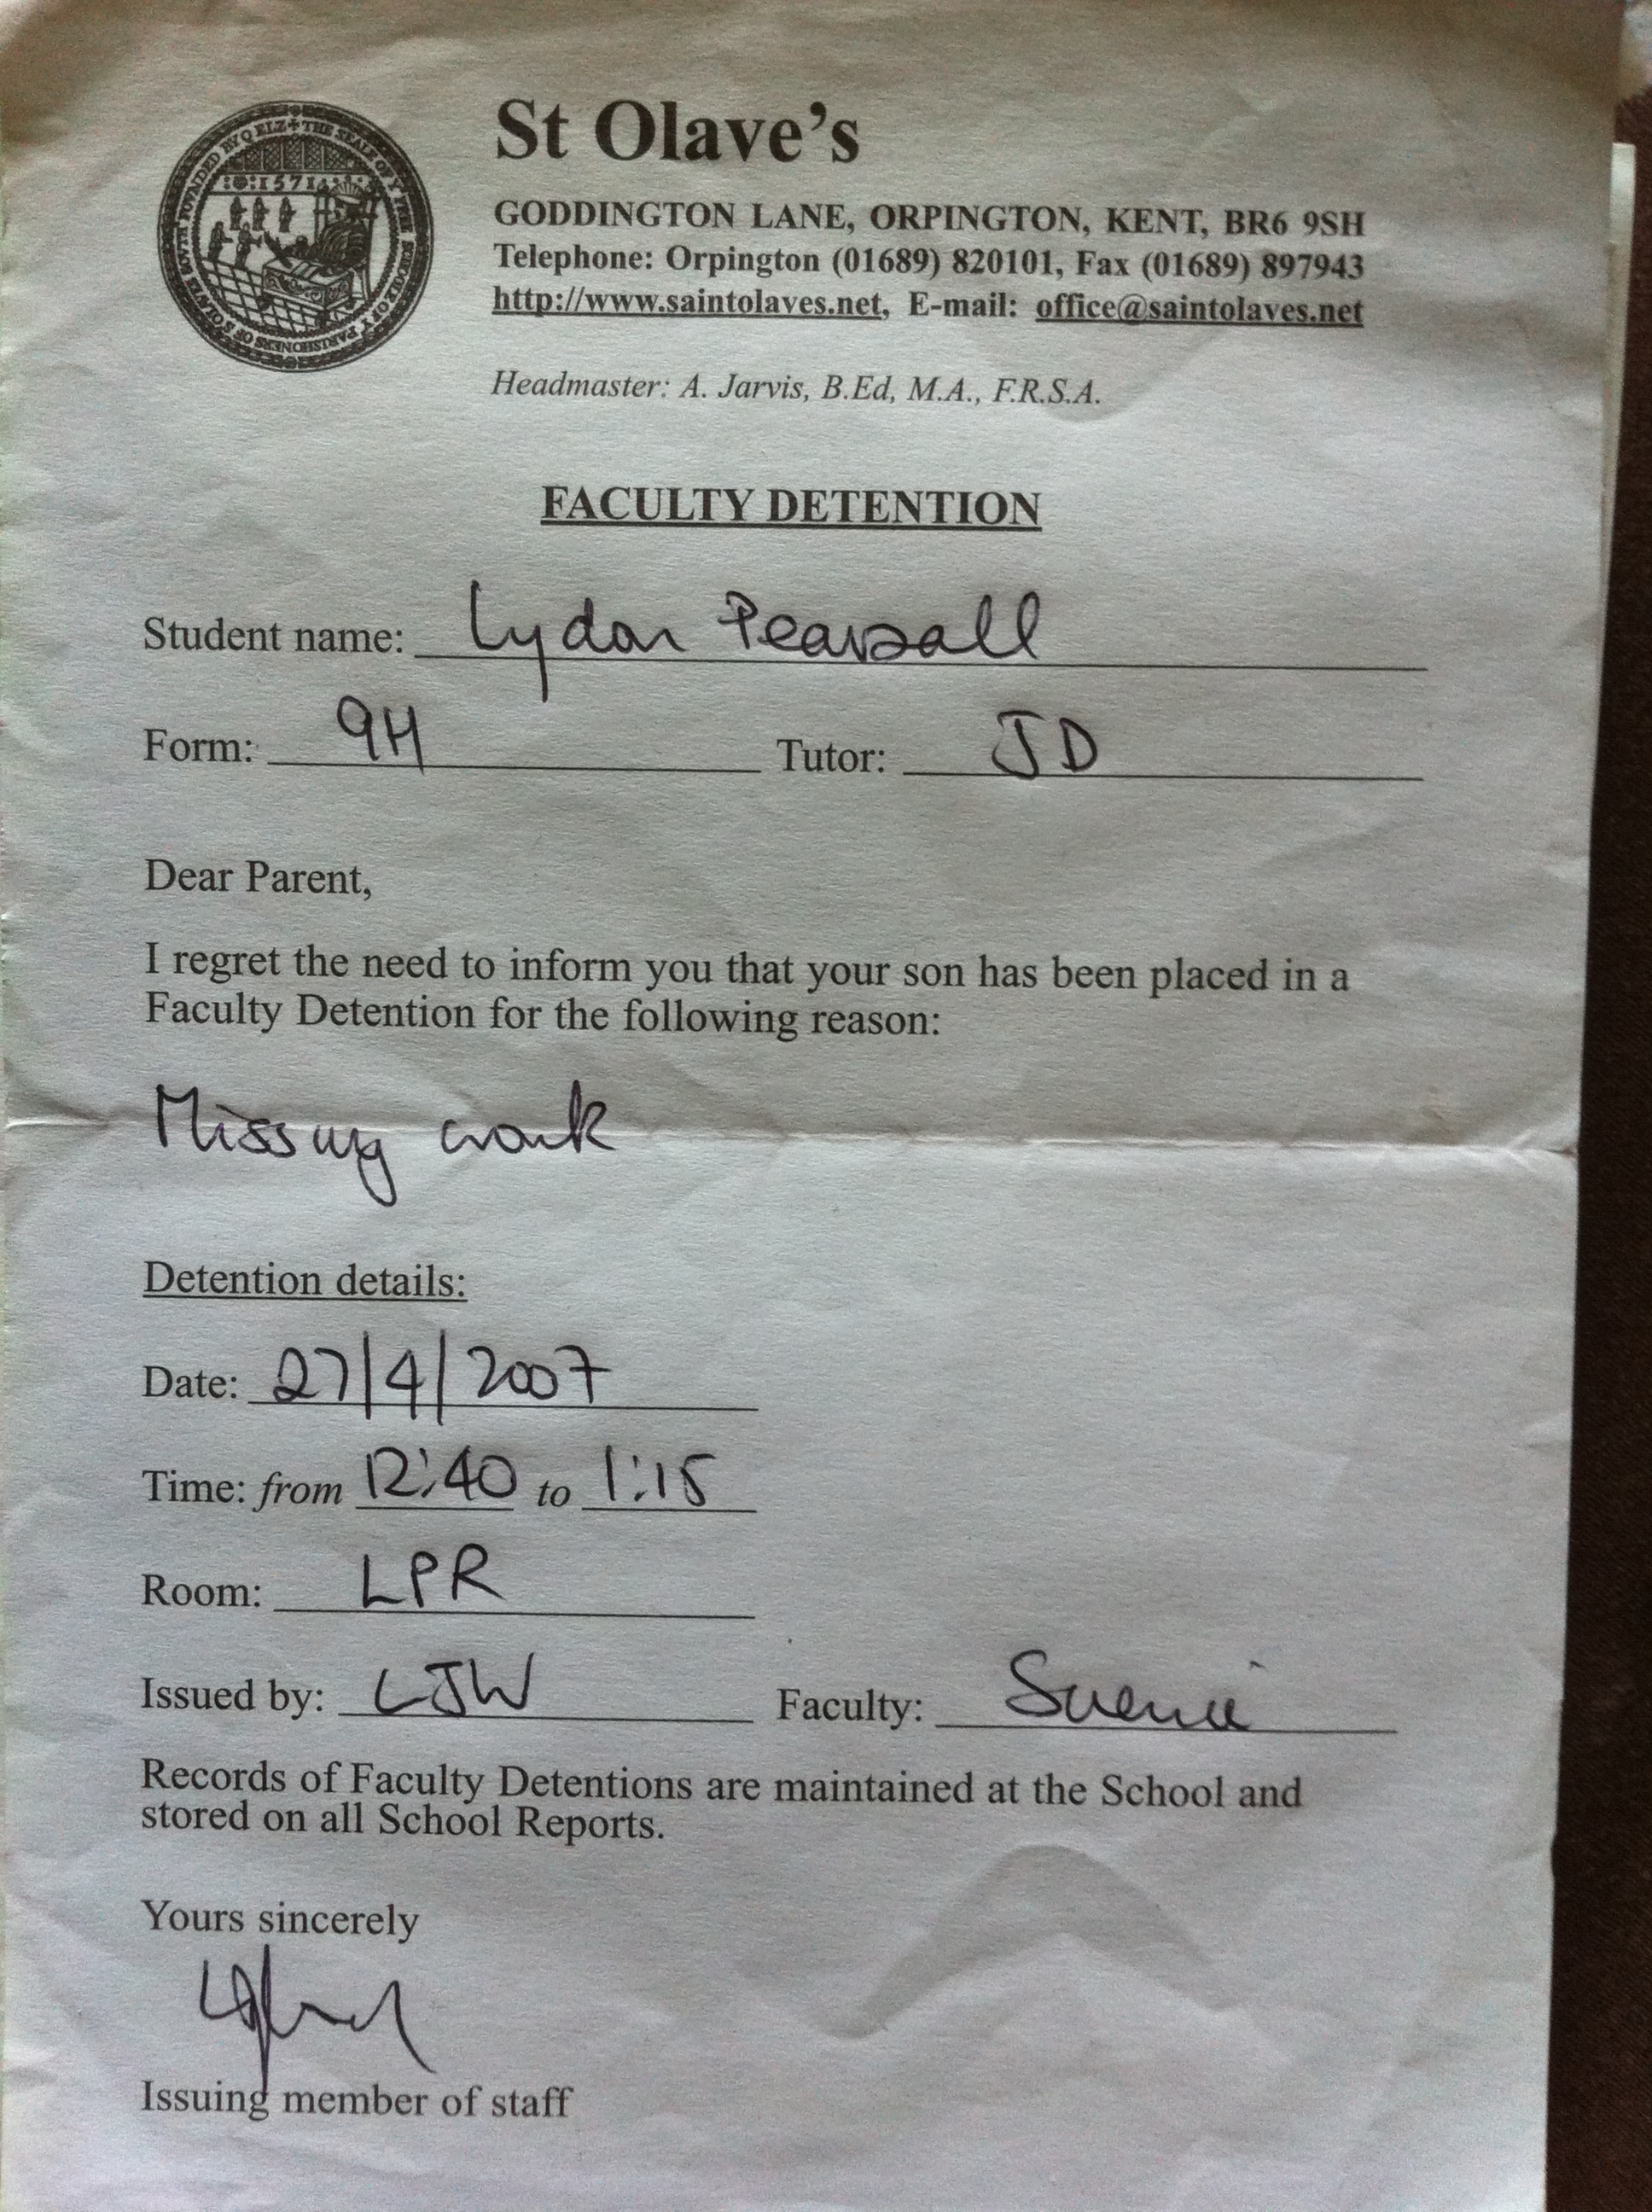 St Olave's
GODDINGTON LANE, ORPINGTON, KENT, BR6 9SH
Telephone: Orpington (01689) 820101, Fax (01689) 897943
http://www.saintolaves.net, E-mail: office@saintolaves.net
Headmaster: A. Jarvis, B.Ed, M.A., F.R.S.A.
1571
FACULTY DETENTION
Student name: Lydon Pearsall
Form: 9H Tutor: JD
Dear Parent,
I regret the need to inform you that your son has been placed in a
Faculty Detention for the following reason:
Missing work
Detention details:
Date: 27/4/2007
Time: from 12:40 to 1:15
Room: LPR
Issued by: LJW Faculty: Science
Records of Faculty Detentions are maintained at the School and
stored on all School Reports.
Yours sincerely
Issuing member of staff